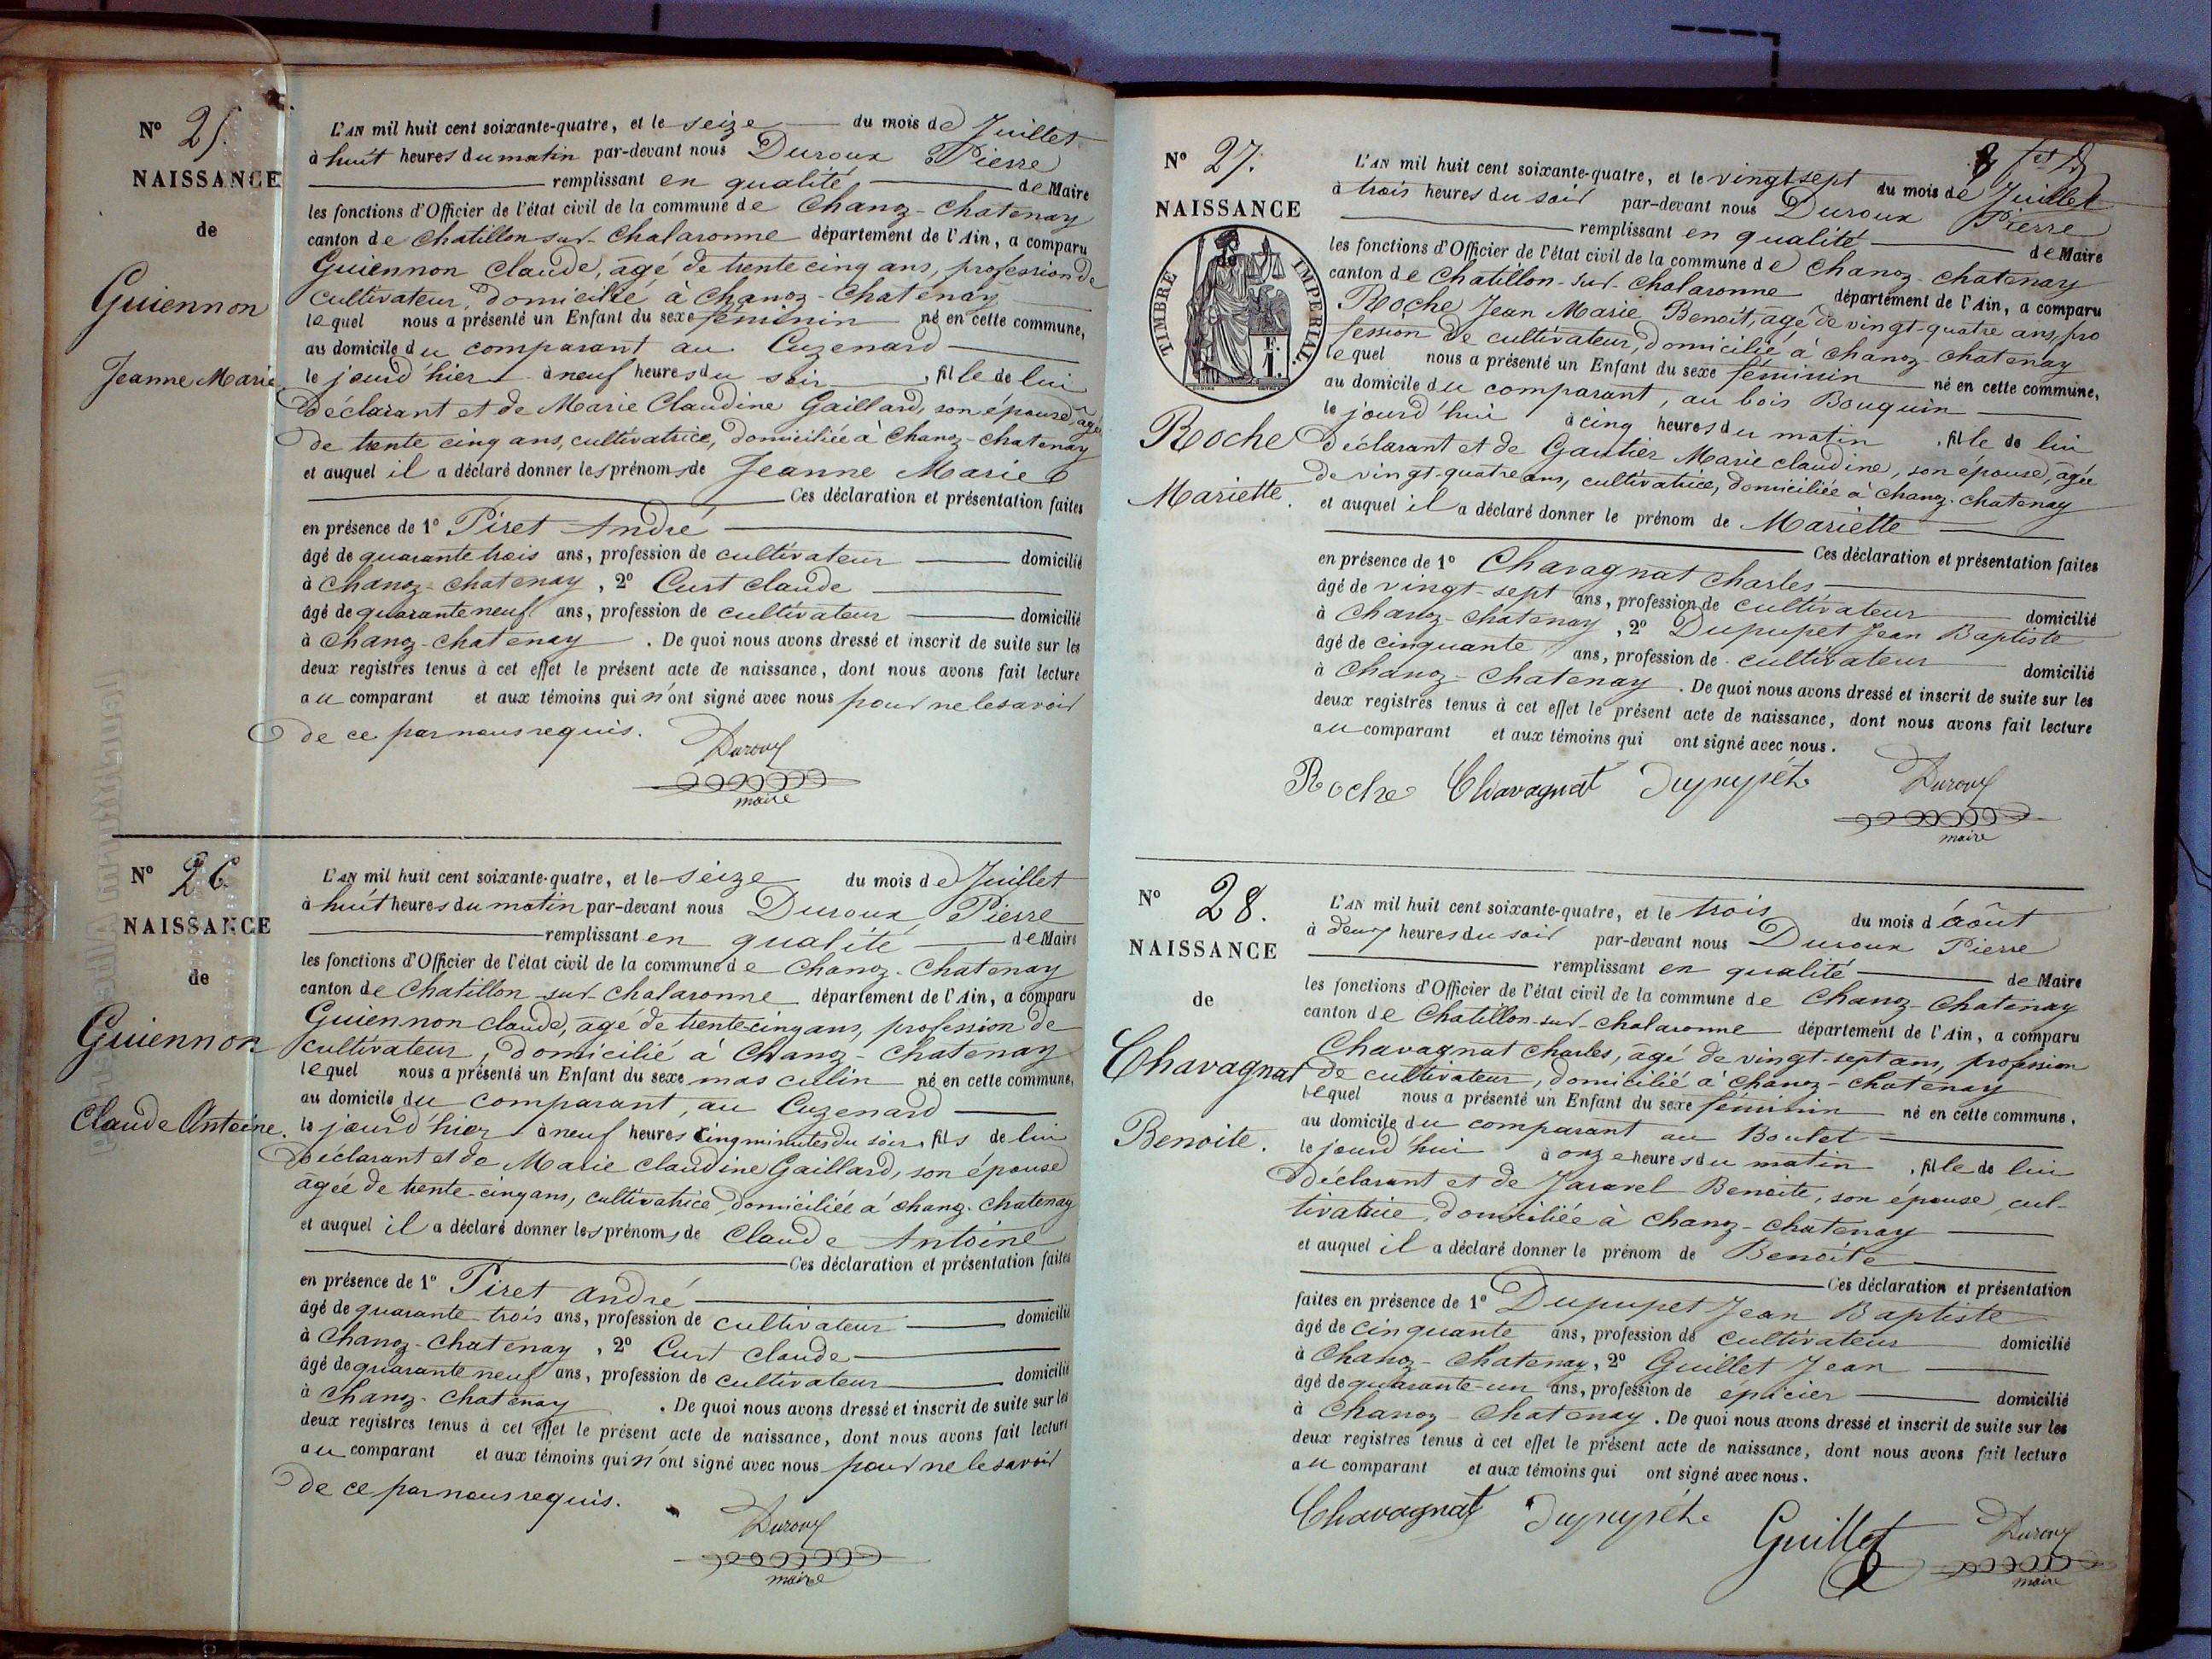 N° 25.
NAISSANCE
de
Guiennon
Jeanne Marie
L'AN mil huit cent soixante-quatre, et le seize du mois de Juillet
à huit heures du matin par-devant nous Duroux Pierre
remplissant en qualité de Maire
les fonctions d'Officier de l'état civil de la commune de Chanoz-Chatenay
canton de Chatillon-sur-Chalaronne département de l'Ain, a comparu
Guiennon Claude, âgé de trente cinq ans, profession de
cultivateur, domicilié à Chanoz-Chatenay
lequel nous a présenté un Enfant du sexe féminin né en cette commune,
au domicile du comparant au Cuzenard
le jourd'hier à neuf heures du soir, fille de lui
déclarant et de Marie Claudine Gaillard, son épouse, âgée
de trente cinq ans, cultivatrice, domiciliée à Chanoz-Chatenay
et auquel il a déclaré donner les prénoms de Jeanne Marie
Ces déclaration et présentation faites
en présence de 1° Piret André
âgé de quarante trois ans, profession de cultivateur domicilié
à Chanoz-Chatenay, 2° Curt Claude
âgé de quarante neuf ans, profession de cultivateur domicilié
à Chanoz-Chatenay. De quoi nous avons dressé et inscrit de suite sur les
deux registres tenus à cet effet le présent acte de naissance, dont nous avons fait lecture
au comparant et aux témoins qui n'ont signé avec nous pour ne le savoir
de ce par nous requis.
Duroux
maire
N° 26
NAISSANCE
de
Guiennon
Claude Antoine.
L'AN mil huit cent soixante-quatre, et le seize du mois de Juillet
à huit heures du matin par-devant nous Duroux Pierre
remplissant en qualité de Maire
les fonctions d'Officier de l'état civil de la commune de Chanoz-Chatenay
canton de Chatillon-sur-Chalaronne département de l'Ain, a comparu
Guiennon Claude, âgé de trente cinq ans, profession de
cultivateur, domicilié à Chanoz-Chatenay
lequel nous a présenté un Enfant du sexe masculin né en cette commune,
au domicile du comparant, au Cuzenard
le jourd'hier à neuf heures cinq minutes du soir, fils de lui
déclarant et de Marie Claudine Gaillard, son épouse
âgée de trente-cinq ans, cultivatrice, domiciliée à Chanoz-Chatenay
et auquel il a déclaré donner les prénoms de Claude Antoine
Ces déclaration et présentation faites
en présence de 1° Piret André
âgé de quarante trois ans, profession de cultivateur domicilié
à Chanoz-Chatenay, 2° Curt Claude
âgé de quarante neuf ans, profession de cultivateur domicilié
à Chanoz-Chatenay. De quoi nous avons dressé et inscrit de suite sur les
deux registres tenus à cet effet le présent acte de naissance, dont nous avons fait lecture
au comparant et aux témoins qui n'ont signé avec nous pour ne le savoir
de ce par nous requis.
Duroux
maire
N° 27.
NAISSANCE
TIMBRE IMPERIAL.
Roche
Mariette.
L'AN mil huit cent soixante-quatre, et le vingt sept du mois de Juillet
à trois heures du soir par-devant nous Duroux Pierre
remplissant en qualité de Maire
les fonctions d'Officier de l'état civil de la commune de Chanoz-Chatenay
canton de Chatillon-sur-Chalaronne département de l'Ain, a comparu
Roche Jean Marie Benoit, âgé de vingt-quatre ans, pro
fession de cultivateur, domicilié à Chanoz-Chatenay
lequel nous a présenté un Enfant du sexe féminin né en cette commune,
au domicile du comparant, au bois Bouquin
le jourd'hui à cinq heures du matin, fille de lui
déclarant et de Gautier Marie Claudine, son épouse, âgée
de vingt-quatre ans, cultivatrice, domiciliée à Chanoz-Chatenay
et auquel il a déclaré donner le prénom de Mariette
Ces déclaration et présentation faites
en présence de 1° Chavagnat Charles
âgé de vingt-sept ans, profession de cultivateur domicilié
à Chanoz-Chatenay, 2° Dupupet Jean Baptiste
âgé de cinquante ans, profession de cultivateur domicilié
à Chanoz-Chatenay. De quoi nous avons dressé et inscrit de suite sur les
deux registres tenus à cet effet le présent acte de naissance, dont nous avons fait lecture
au comparant et aux témoins qui ont signé avec nous.
Roche Chavagnat Dupupét Duroux
maire
N° 28.
NAISSANCE
de
Chavagnat
Benoite.
L'AN mil huit cent soixante-quatre, et le trois du mois d'août
à deux heures du soir par-devant nous Duroux Pierre
remplissant en qualité de Maire
les fonctions d'Officier de l'état civil de la commune de Chanoz-Chatenay
canton de Chatillon-sur-Chalaronne département de l'Ain, a comparu
Chavagnat Charles, âgé de vingt-sept ans, profession
de cultivateur, domicilié à Chanoz-Chatenay
lequel nous a présenté un Enfant du sexe féminin né en cette commune,
au domicile du comparant au Boulet
le jourd'hui à onze heures du matin, fille de lui
déclarant et de Jaravel Benoite, son épouse, cul-
tivatrice, domiciliée à Chanoz-Chatenay
et auquel il a déclaré donner le prénom de Benoite
Ces déclaration et présentation
faites en présence de 1° Dupupet Jean Baptiste
âgé de cinquante ans, profession de cultivateur domicilié
à Chanoz-Chatenay, 2° Guillet Jean
âgé de quarante-un ans, profession de epicier domicilié
à Chanoz-Chatenay. De quoi nous avons dressé et inscrit de suite sur les
deux registres tenus à cet effet le présent acte de naissance, dont nous avons fait lecture
au comparant et aux témoins qui ont signé avec nous.
Chavagnat Dupupét Guillet Duroux
maire